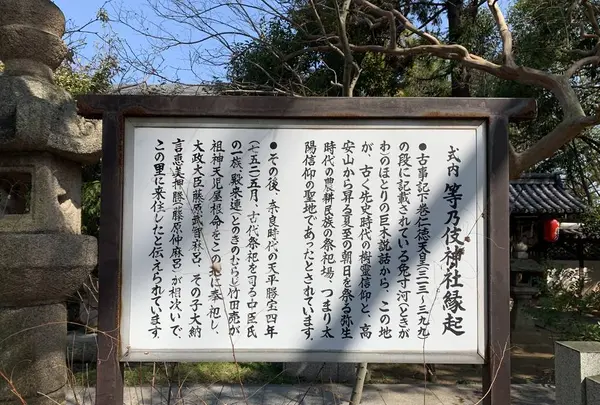 式内 等乃伎神社縁起
●古事記下巻仁徳天皇(三一三〜三九九)
の段に記載されている兎寸河(ときが
わ)のほとりの巨木説話から、この地
が、古く先史時代の樹霊信仰と、高
安山から昇る夏至の朝日を祭る弥生
時代の農耕民族の祭祀場、つまり太
陽信仰の聖地であったとされています。
●その後、奈良時代の天平勝宝四年
(七五二)五月、古代祭祀を司る中臣氏
の一族 殿来連(とのきのむらじ)竹田売が
祖神天児屋根命をこの地に奉祀し、
大政大臣藤原武智麻呂、その子大納
言恵美押勝(藤原仲麻呂)が相次いで、
この里に来住したと伝えられています。